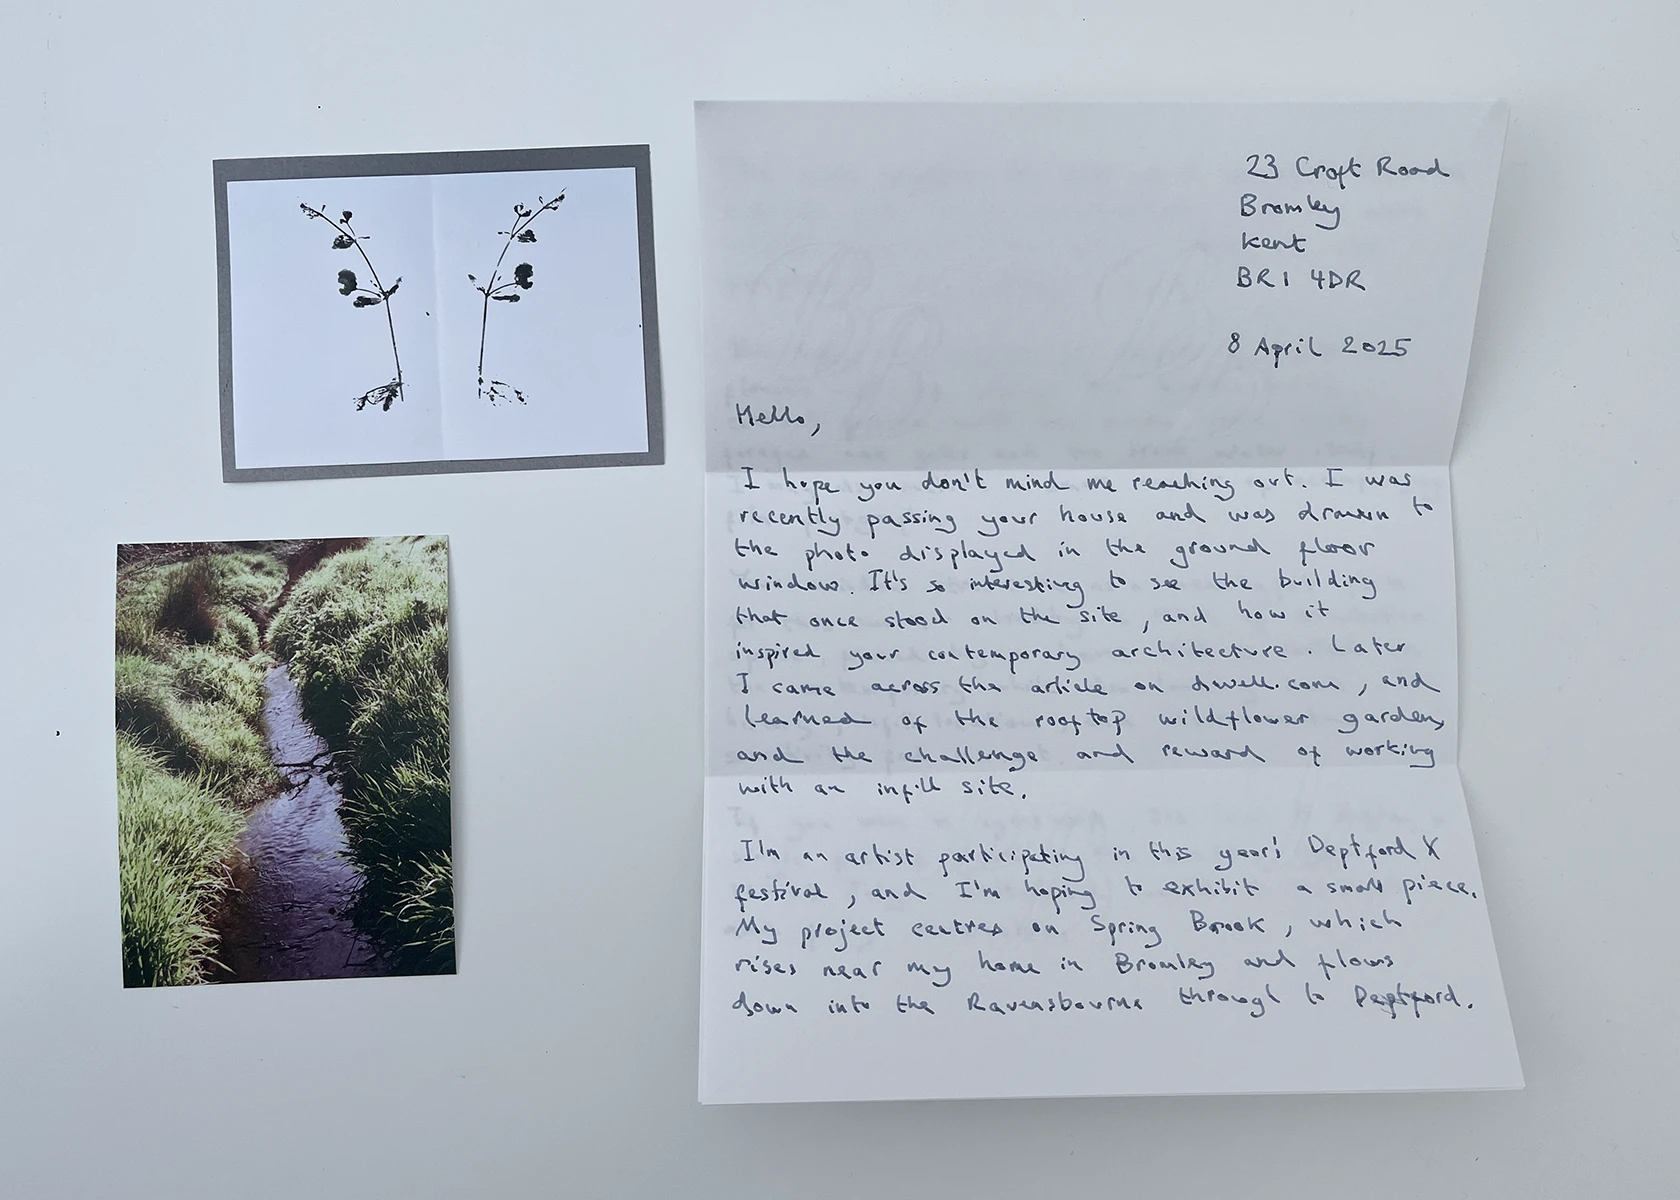 23 Croft Road
Bromley
Kent
BR1 4DR
8 April 2025
Hello,
I hope you don't mind me reaching out. I was
recently passing your house and was drawn to
the photo displayed in the ground floor
window. It's so interesting to see the building
that once stood on the site, and how it
inspired your contemporary architecture. Later
I came across the article on dwell.com, and
learned of the rooftop wildflower garden,
and the challenge and reward of working
with an infill site.
I'm an artist participating in this year's Deptford X
festival, and I'm hoping to exhibit a small piece.
My project centres on Spring Brook, which
rises near my home in Bromley and flows
down into the Ravensbourne through to Deptford.